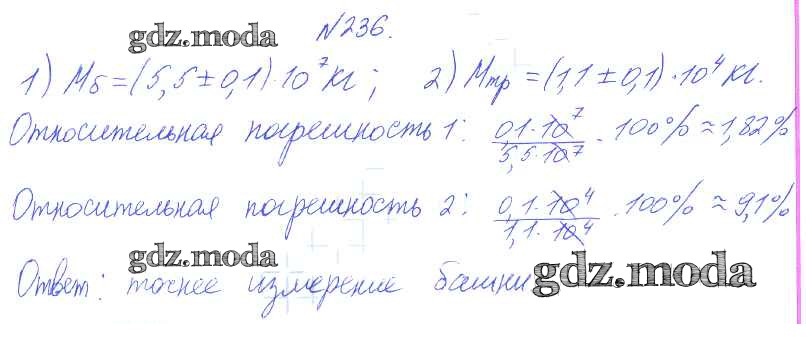 №236.
gdz.moda
1) Mб = (5,5 ± 0,1) · 10⁷ кг; 2) Mтр = (1,1 ± 0,1) · 10⁴ кг.
Относительная погрешность 1: 0,1·10⁷ / 5,5·10⁷ · 100% ≈ 1,82%
Относительная погрешность 2: 0,1·10⁴ / 1,1·10⁴ · 100% ≈ 9,1%
gdz.moda
Ответ: точнее измерение башни
gdz.moda